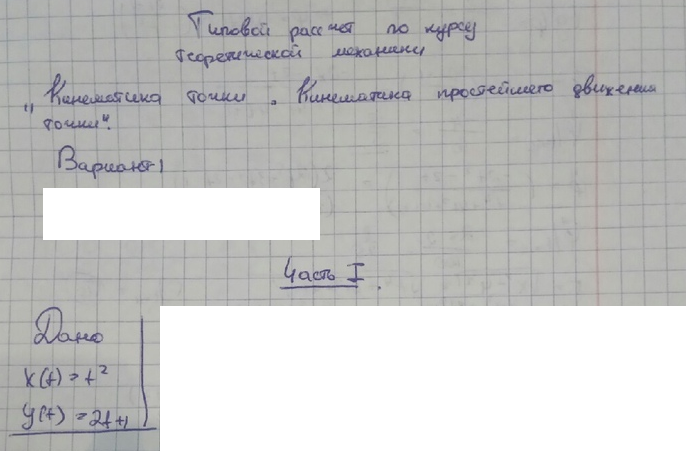 Типовой рассчет по курсу
теоретической механики
„Кинематика точки. Кинематика простейшего движения
точки".
Вариант 1
Часть I.
Дано
x(t) = t²
y(t) = 2t+1